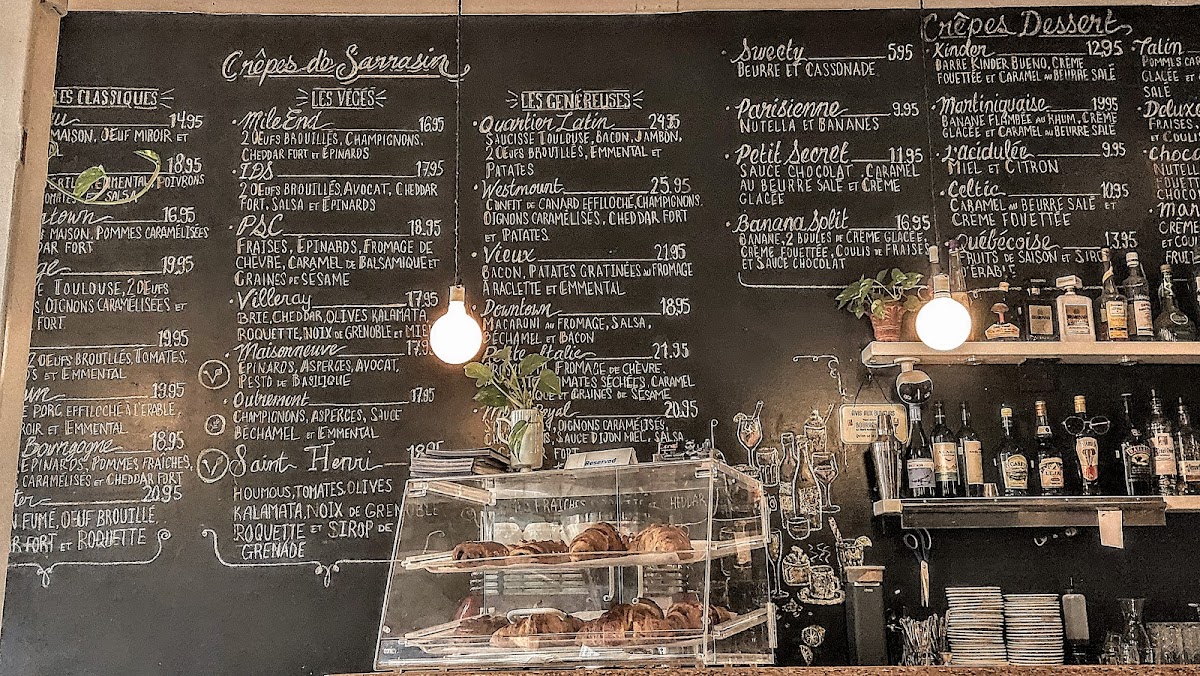 Crêpes de Sarrasin
LES CLASSIQUES
14.95
MAISON, OEUF MIROIR ET
18.95
EMMENTAL, POIVRONS
SALSA
16.95
MAISON, POMMES CARAMÉLISÉES
FORT
19.95
TOULOUSE, 2 OEUFS
OIGNONS CARAMÉLISÉS ET
FORT
19.95
2 OEUFS BROUILLÉS, TOMATES,
ET EMMENTAL
19.95
PORC EFFILOCHÉ À L'ÉRABLE,
ET EMMENTAL
Bourgogne 18.95
ÉPINARDS, POMMES FRAÎCHES,
CARAMÉLISÉES ET CHEDDAR FORT
20.95
FUMÉ, OEUF BROUILLÉ,
FORT ET ROQUETTE
LES VÉGÉS
Mile End 16.95
2 OEUFS BROUILLÉS, CHAMPIGNONS,
CHEDDAR FORT ET ÉPINARDS
IDS 17.95
2 OEUFS BROUILLÉS, AVOCAT, CHEDDAR
FORT, SALSA ET ÉPINARDS
PSC 18.95
FRAISES, ÉPINARDS, FROMAGE DE
CHÈVRE, CARAMEL DE BALSAMIQUE ET
GRAINES DE SÉSAME
Villeray 17.95
BRIE, CHEDDAR, OLIVES KALAMATA,
ROQUETTE, NOIX DE GRENOBLE ET MIEL
Maisonneuve 17.95
ÉPINARDS, ASPERGES, AVOCAT,
PESTO DE BASILIQUE
Outremont 17.95
CHAMPIGNONS, ASPERGES, SAUCE
BÉCHAMEL ET EMMENTAL
Saint Henri 18.95
HOUMOUS, TOMATES, OLIVES
KALAMATA, NOIX DE GRENOBLE
ROQUETTE ET SIROP DE
GRENADE
LES GÉNÉREUSES
Quartier Latin 24.95
SAUCISSE TOULOUSE, BACON, JAMBON,
2 OEUFS BROUILLÉS, EMMENTAL ET
PATATES
Westmount 25.95
CONFIT DE CANARD EFFILOCHÉ, CHAMPIGNONS,
OIGNONS CARAMÉLISÉS, CHEDDAR FORT
ET PATATES
Vieux 21.95
BACON, PATATES GRATINÉES AU FROMAGE
À RACLETTE ET EMMENTAL
Downtown 18.95
MACARONI AU FROMAGE, SALSA,
BÉCHAMEL ET BACON
Italie 21.95
FROMAGE DE CHÈVRE,
TOMATES SÉCHÉES, CARAMEL
ET GRAINES DE SÉSAME
Royal 20.95
OIGNONS CARAMÉLISÉS,
SAUCE DIJON MIEL, SALSA
Sweety 5.95
BEURRE ET CASSONADE
Parisienne 9.95
NUTELLA ET BANANES
Petit Secret 11.95
SAUCE CHOCOLAT, CARAMEL
AU BEURRE SALÉ ET CRÈME
GLACÉE
Banana Split 16.95
BANANE, 2 BOULES DE CRÈME GLACÉE,
CRÈME FOUETTÉE, COULIS DE FRAISES
ET SAUCE CHOCOLAT
Crêpes Dessert
Kinder 12.95
BARRE KINDER BUENO, CRÈME
FOUETTÉE ET CARAMEL AU BEURRE SALÉ
Martiniquaise 19.95
BANANE FLAMBÉE AU RHUM, CRÈME
GLACÉE ET CARAMEL AU BEURRE SALÉ
L'acidulée 9.95
MIEL ET CITRON
Celtic 10.95
CARAMEL AU BEURRE SALÉ ET
CRÈME FOUETTÉE
Québécoise 13.95
FRUITS DE SAISON ET SIROP
D'ÉRABLE
Tatin
POMMES
GLACÉE ET
SALÉ
Deluxe
FRAISES,
ET
NUTELLA
CHOCOLAT
FRUITS
Reserved
FRAÎCHES
CHEDDAR